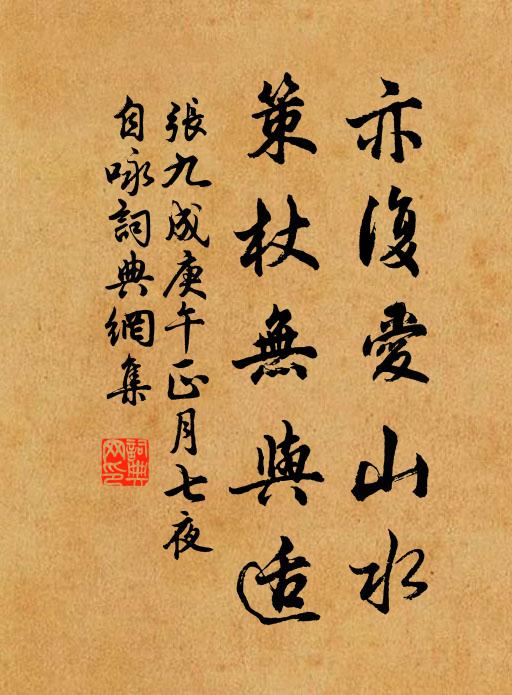 亦復愛山水
策杖無與適
張九成庚午正月七夜
自咏詞典網集
詞典網印